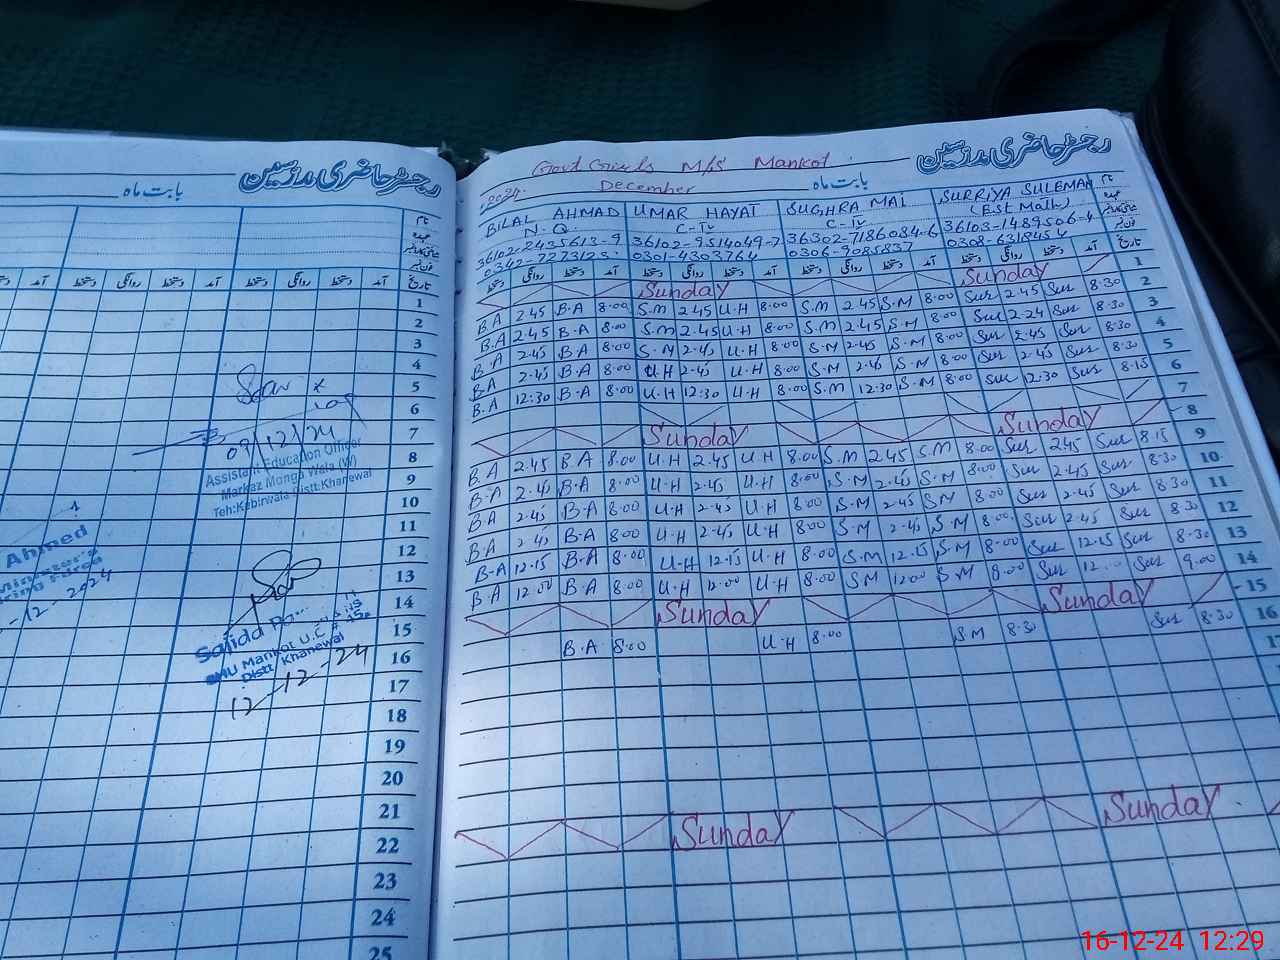 رجسٹر حاضری مدرسین
بابت ماہ
نام
عہدہ
آمد دستخط روانگی دستخط آمد دستخط
تاریخ
1
2
3
4
5
6
7
8
9
10
11
12
13
14
15
16
17
18
19
20
21
22
23
24
25
09/12/24
Assistant Education Officer
Markaz Monga Wala (W)
Teh:Kabirwala Distt:Khanewal
Ahmed
12-2024
Sajida
Mankot U.C #
Distt Khanewal
12-12-24
Govt Girls M/S Mankot
رجسٹر حاضری مدرسین
2024. December بابت ماہ
BILAL AHMAD UMAR HAYAT SUGHRA MAI SURRIYA SULEMAN
N.Q. C-IV C-IV (Est Math)
36102-2435613-9 36102-9514049-7 36302-7186084-6 36103-1489506-4
0342-7273123 0301-4303764 0306-9085837 0308-6318454
دستخط روانگی دستخط آمد دستخط روانگی دستخط آمد دستخط روانگی دستخط آمد دستخط روانگی دستخط آمد تاریخ
Sunday Sunday 1
B.A 2.45 B.A 8.00 S.M 2.45 U.H 8.00 S.M 2.45 S.M 8.00 Sur 2.45 Sur 8.30 2
B.A 2.45 B.A 8.00 S.M 2.45 U.H 8.00 S.M 2.45 S.M 8.00 Sur 2.24 Sur 8.30 3
B.A 2.45 B.A 8.00 S.M 2.45 U.H 8.00 S.M 2.45 S.M 8.00 Sur 2.45 Sur 8.30 4
B.A 2.45 B.A 8.00 U.H 2.45 U.H 8.00 S.M 2.45 S.M 8.00 Sur 2.45 Sur 8.30 5
B.A 12:30 B.A 8.00 U.H 12:30 U.H 8.00 S.M 12:30 S.M 8.00 Sur 2:30 Sur 8.15 6
7
Sunday Sunday 8
B.A 2.45 B.A 8.00 U.H 2.45 U.H 8.00 S.M 2.45 S.M 8.00 Sur 2.45 Sur 8.15 9
B.A 2.45 B.A 8.00 U.H 2.45 U.H 8.00 S.M 2.45 S.M 8.00 Sur 2.45 Sur 8.30 10
B.A 2.45 B.A 8.00 U.H 2.45 U.H 8.00 S.M 2.45 S.M 8.00 Sur 2.45 Sur 8.30 11
B.A 2.45 B.A 8.00 U.H 2.45 U.H 8.00 S.M 2.45 S.M 8.00 Sur 2.45 Sur 8.30 12
B.A 12.15 B.A 8.00 U.H 12.15 U.H 8.00 S.M 12.15 S.M 8.00 Sur 12.15 Sur 8.30 13
B.A 12.00 B.A 8.00 U.H 12.00 U.H 8.00 S.M 12.00 S.M 8.00 Sur 12.00 Sur 9.00 14
Sunday Sunday 15
B.A 8.00 U.H 8.00 S.M 8.30 Sur 8.30 16
Sunday Sunday
16-12-24 12:29